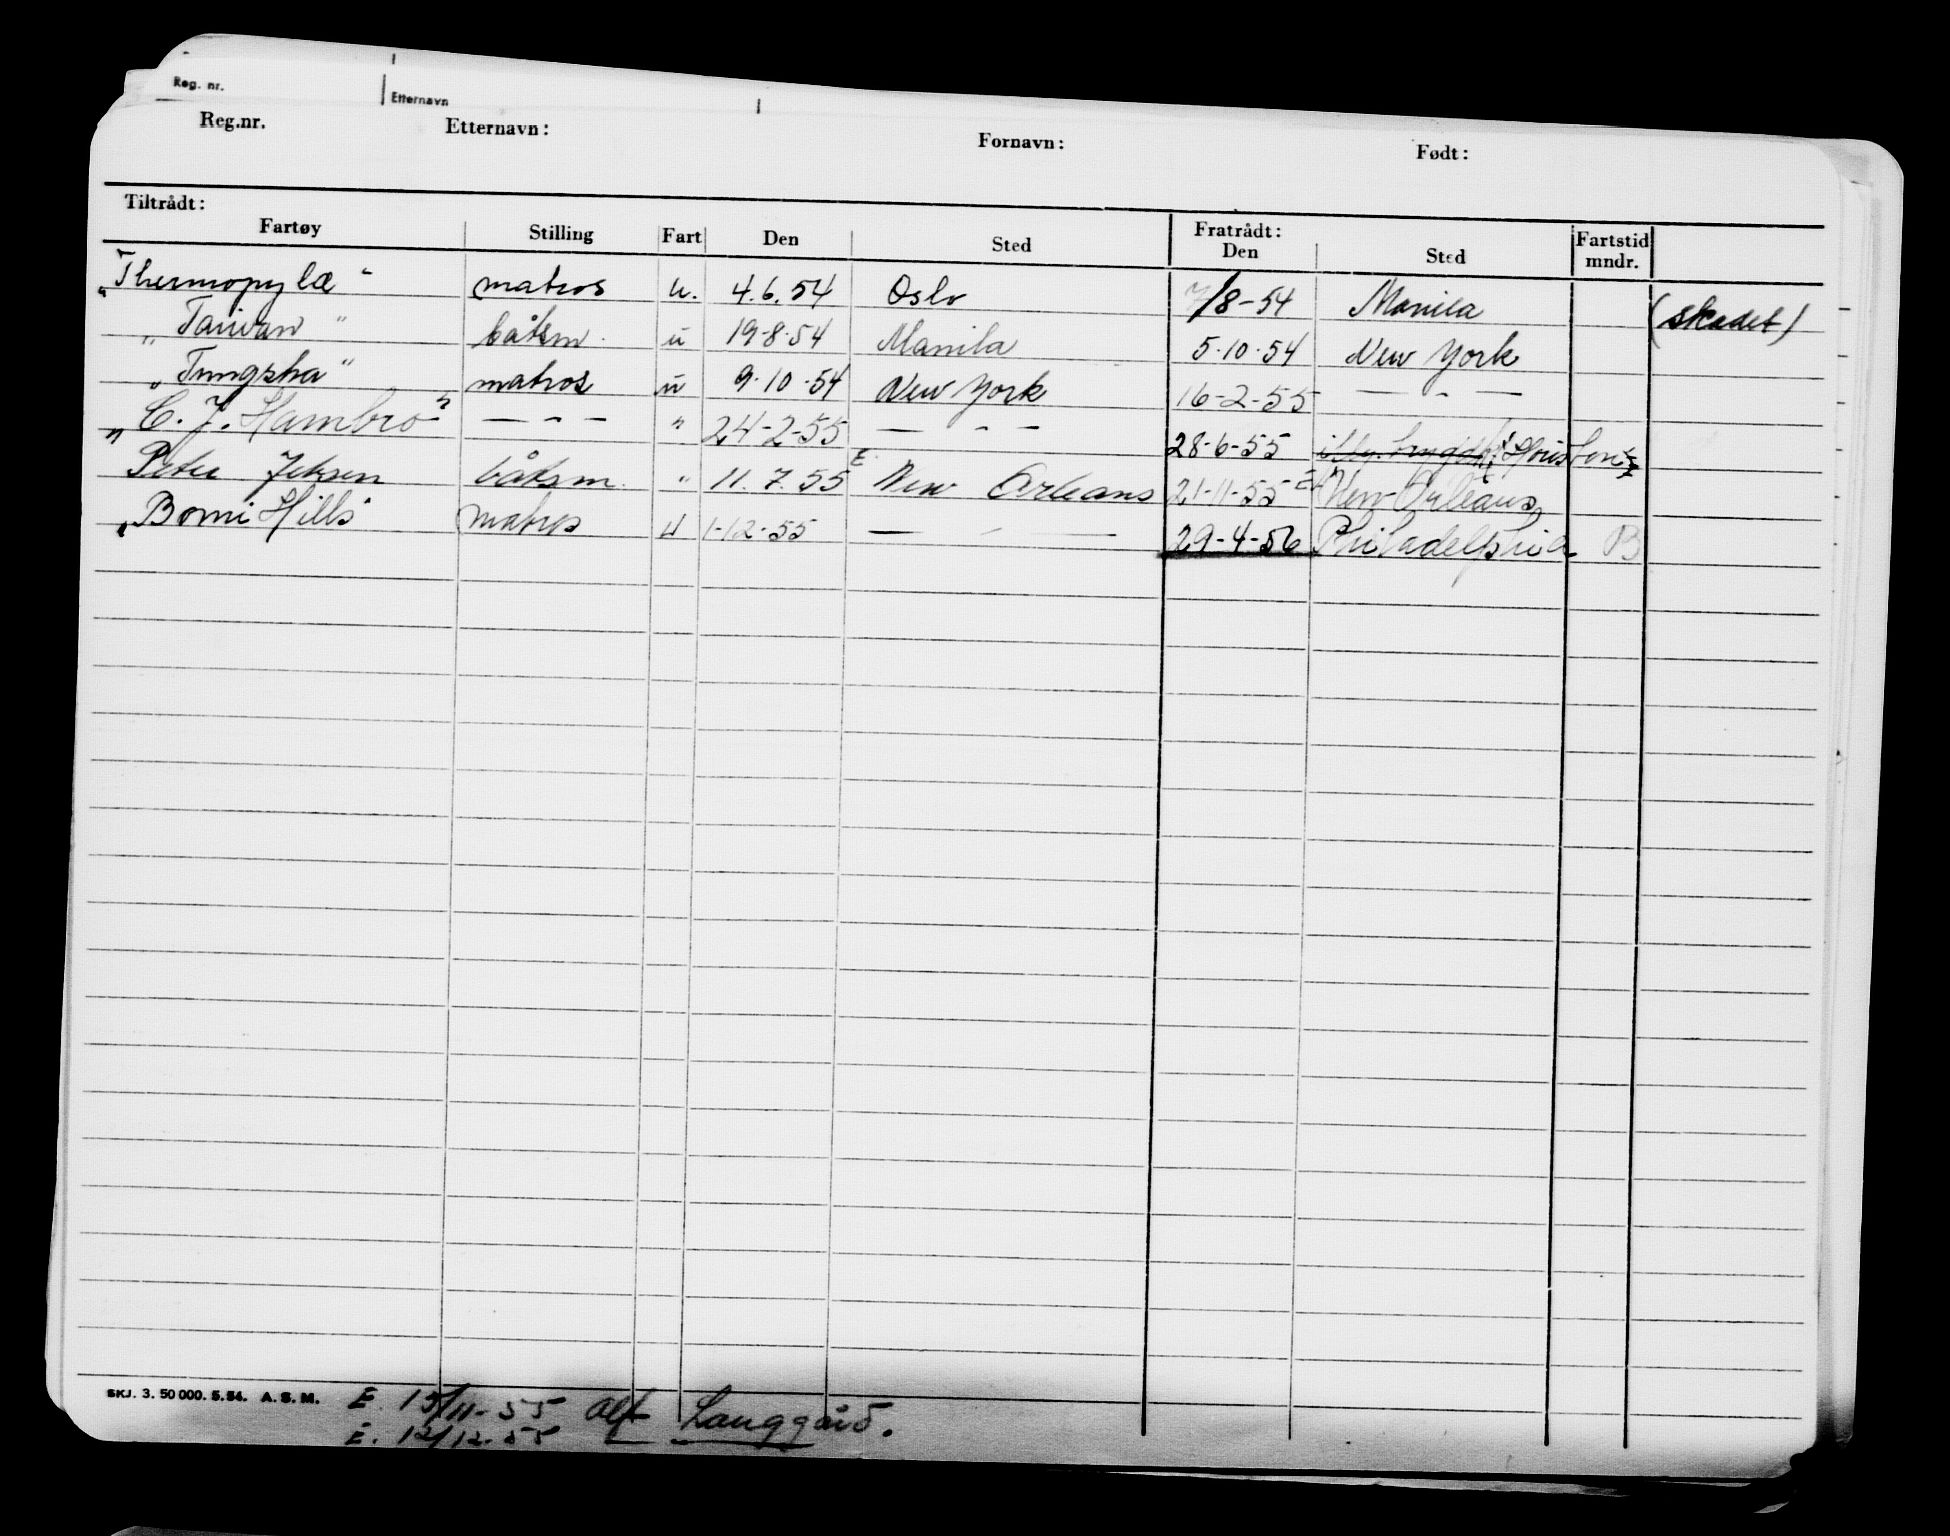 Reg. nr. Etternavn
Reg.nr. Etternavn: Fornavn: Født:
Tiltrådt: Fratrådt:
Fartøy Stilling Fart Den Sted Den Sted Fartstid mndr.
"Thermopylæ" matros u. 4.6.54 Oslo 7/8-54 Manila (skadet)
"Taiwan" båtsm. u 19-8-54 Manila 5-10-54 New York
"Tungsha" matros u 9-10-54 New York 16-2-55 — - —
"C. J. Hambro" — - — " 24-2-55 — - — 28-6-55 Houston
Peter Jebsen båtsm. " 11.7.55 E. New Orleans 21-11-55 E New Orleans
"Bomi Hills" matros u 1-12-55 — - — 29-4-56 Philadelphia B
SKJ. 3. 50 000. 5.54. A. S. M. E. 15/11-55 Alf Langgård.
E. 12/12-55